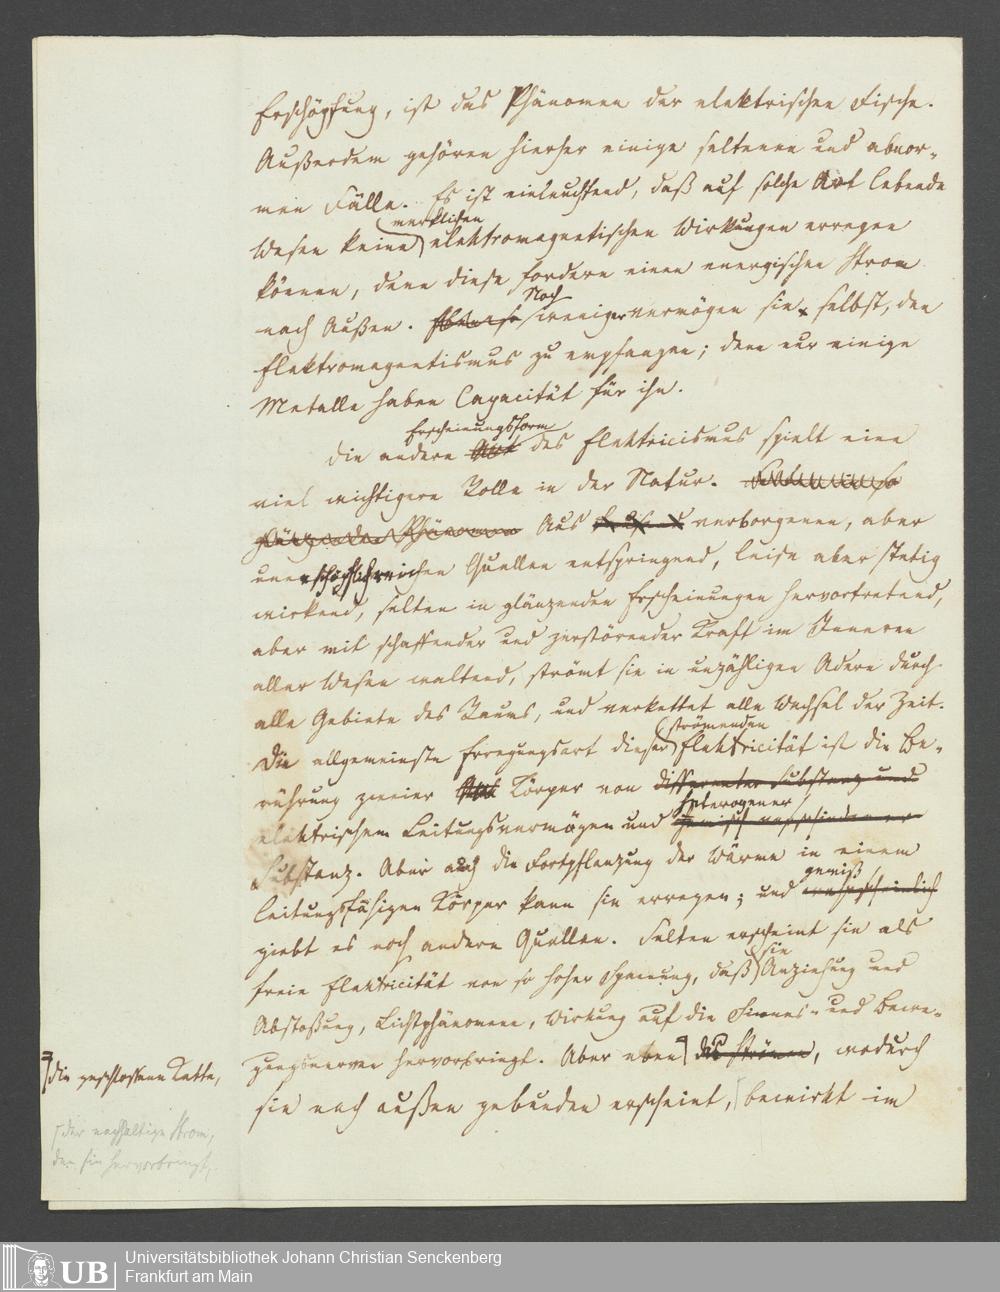 Erschöpfung, ist das Phänomen der elektrischen Fische.
Außerdem gehören hierher einige seltenen und abnor-
men Fälle. Es ist einleuchtend, daß auf solche Art lebende
merklichen
Wesen keine elektromagnetischen Wirkungen erregen
können, denn diese fordern einen energischen Strom
Noch
nach Außen. Ebenso weniger vermögen sie selbst, den
Elektromagnetismus zu empfangen; denn nur einige
Metalle haben Capacität für ihn.
Erscheinungsform
Die andere Art des Elektricismus spielt eine
viel wichtigere Rolle in der Natur.
glänzenden Phänomen Aus verborgenen, aber
unerschöpflichreichen Quellen entspringend, leise aber stetig
wirkend, selten in glänzenden Erscheinungen hervortretend,
aber mit schaffender und zerstörender Kraft im Inneren
aller Wesen waltend, strömt sie in unzähligen Adern durch
alle Gebiete des Raums, und verkettet alle Wechsel der Zeit.
strömenden
Die allgemeinste Erregungsart dieser Elektricität ist die Be-
rührung zweier Körper von differenter Substanz und
heterogener
elektrischem Leitungsvermögen und chemisch verschiedener
Substanz. Aber auch die Fortpflanzung der Wärme in einem
gewiß
leitungsfähigen Körper kann sie erregen; und wahrscheinlich
giebt es noch andere Quellen. Selten erscheint sie als
sie
freie Elektricität von so hoher Spannung, daß Anziehung und
Abstoßung, Lichtphänomene, Wirkung auf die Sinnes- und Bewe-
gungsnerven hervorbringt. Aber eben das Strömen, wodurch
die geschlossene Kette,
sie nach außen gebunden erscheint, bewirkt im
der nachhaltige Strom,
den sie hervorbringt,
Universitätsbibliothek Johann Christian Senckenberg
Frankfurt am Main
UB